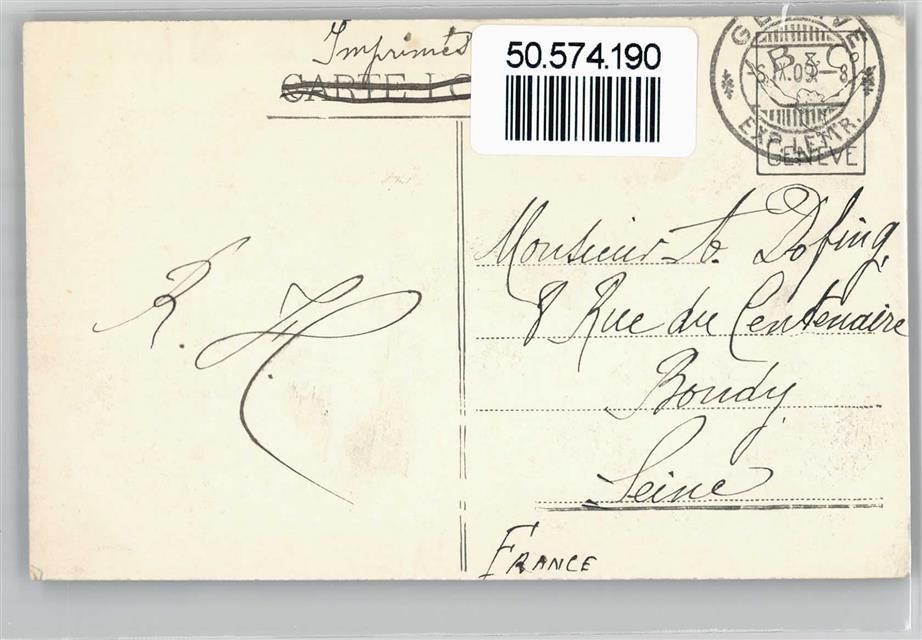 Imprimés
50.574.190
CARTE
GENÈVE
B & C
-6.IX.09.-8
EXP. LETTR.
GENÈVE
R. H.
Monsieur A. Dofing
8 Rue du Centenaire
Bondy
Seine
FRANCE